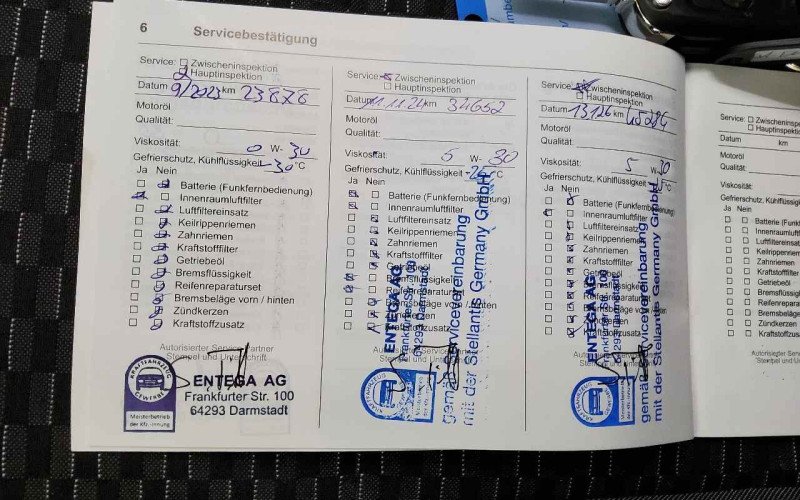 6 Servicebestätigung
Service: Zwischeninspektion
Hauptinspektion
Datum 9/2023 km 23878
Motoröl
Qualität:
Viskosität: 0 W- 30
Gefrierschutz, Kühlflüssigkeit -30 °C
Ja Nein
Batterie (Funkfernbedienung)
Innenraumluftfilter
Luftfiltereinsatz
Keilrippenriemen
Zahnriemen
Kraftstofffilter
Getriebeöl
Bremsflüssigkeit
Reifenreparaturset
Bremsbeläge vorn / hinten
Zündkerzen
Kraftstoffzusatz
Autorisierter Service Partner
Stempel und Unterschrift
KRAFTFAHRZEUG
GEWERBE
Meisterbetrieb
der Kfz-Innung
ENTEGA AG
Frankfurter Str. 100
64293 Darmstadt
Service: Zwischeninspektion
Hauptinspektion
Datum 11.11.24 km 34652
Motoröl
Qualität:
Viskosität: 5 W- 30
Gefrierschutz, Kühlflüssigkeit
Ja Nein
Batterie (Funkfernbedienung)
Innenraumluftfilter
Luftfiltereinsatz
Keilrippenriemen
Zahnriemen
Kraftstofffilter
Getriebeöl
Bremsflüssigkeit
Reifenreparaturset
Bremsbeläge vorn / hinten
Zündkerzen
Kraftstoffzusatz
ENTEGA AG
Frankfurter Str. 100
64293 Darmstadt
gemäß Servicevereinbarung
mit der Stellantis Germany GmbH
Service: Zwischeninspektion
Hauptinspektion
Datum km
Motoröl
Qualität:
Viskosität: 5 W- 30
Gefrierschutz, Kühlflüssigkeit
Ja Nein
Batterie (Funkfernbedienung)
Innenraumluftfilter
Luftfiltereinsatz
Keilrippenriemen
Zahnriemen
Kraftstofffilter
Getriebeöl
Bremsflüssigkeit
Reifenreparaturset
Bremsbeläge vorn
Zündkerzen
Kraftstoffzusatz
ENTEGA AG
Frankfurter Str. 100
64293 Darmstadt
gemäß Servicevereinbarung
mit der Stellantis Germany GmbH
Service: Zwischeninspektion
Hauptinspektion
Datum km
Motoröl
Qualität:
Viskosität:
Gefrierschutz, Kühlflüssigkeit
Ja Nein
Batterie
Innenraumluftfilter
Luftfiltereinsatz
Keilrippenriemen
Zahnriemen
Kraftstofffilter
Getriebeöl
Bremsflüssigkeit
Reifenreparaturset
Bremsbeläge
Zündkerzen
Kraftstoffzusatz
Autorisierter
Stempel und